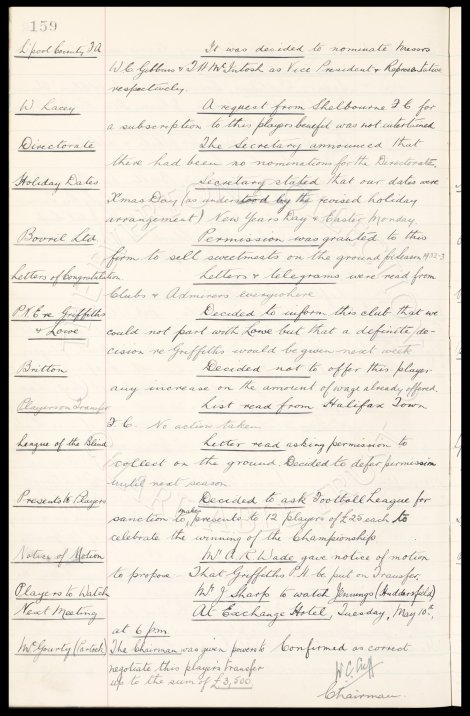 159
L'pool County F A It was decided to nominate Messrs
W. C. Gibbins & T H McIntosh as Vice President & Representative
respectively.
W Lacey A request from Shelbourne F C for
a subscription to this players benefit was not entertained
Directorate The Secretary announced that
there had been no nominations for the Directorate
Holiday Dates Secretary stated that our dates were
Xmas Day (as understood by the revised holiday
arrangement) New Years Day & Easter Monday.
Bovril Ltd. Permission was granted to this
firm to sell sweetmeats on the ground for season 1932-3
Letters of Congratulation Letters & telegrams were read from
Clubs & Admirers everywhere
P N E re Griffiths Decided to inform this club that we
& Lowe could not part with Lowe but that a definite de-
cision re Griffiths would be given next week
Britton Decided not to offer this player
any increase on the amount of wage already offered.
Players on Transfer List read from Halifax Town
F. C. No action taken
League of the Blind Letter read asking permission to
collect on the ground. Decided to defer permission
until next season
Presents to Players Decided to ask Football League for
sanction to make presents to 12 players of £25 each to
celebrate the winning of the Championship
Notice of Motion Mr A. R. Wade gave notice of motion
to propose - That Griffiths P. H. be put on Transfer.
Players to Watch Mr J Sharp to watch Jennings (Huddersfield)
Next Meeting At Exchange Hotel, Tuesday, May 10th,
at 6 pm
McGourty (Partick) The Chairman was given powers to Confirmed as correct
negotiate this players transfer
up to the sum of £3,500
W. C. Cuff
Chairman.